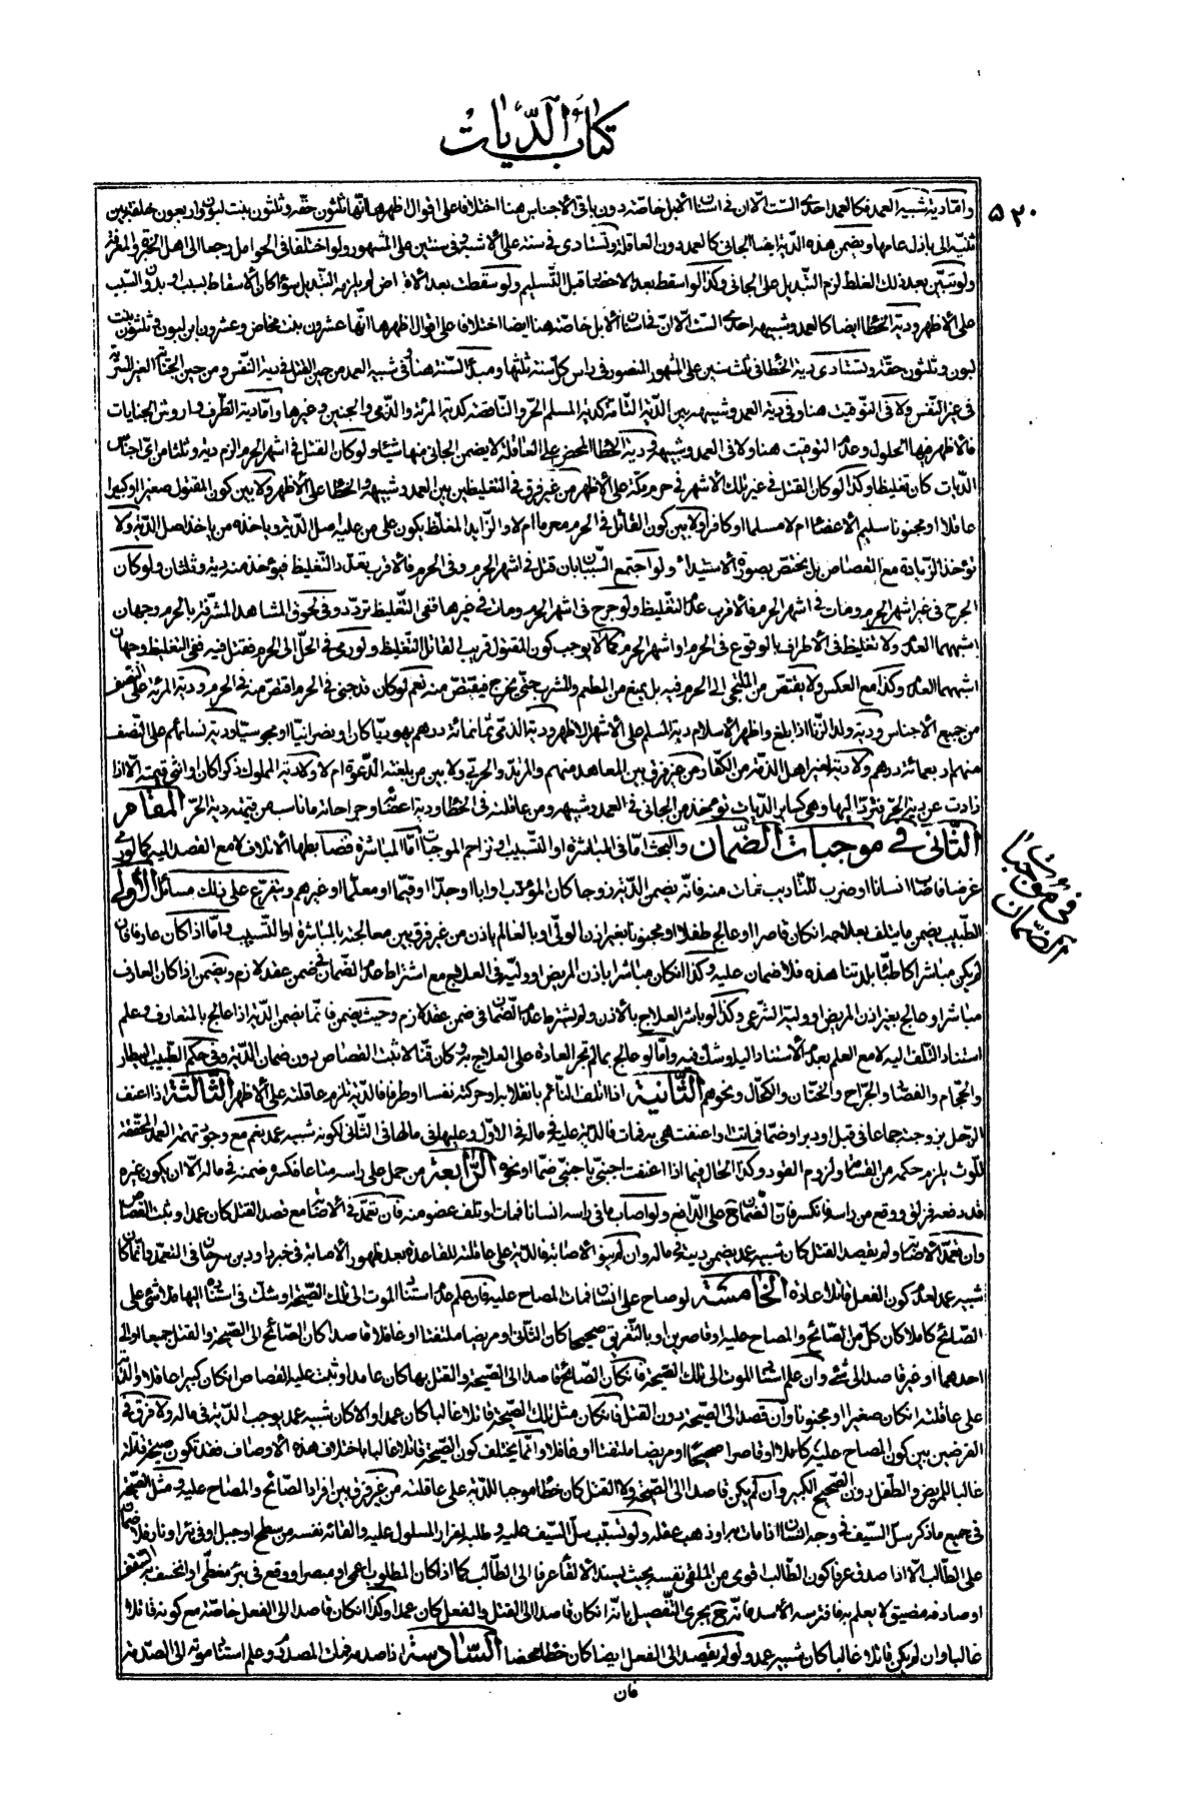 كتاب الديات
۵۲۰
وامّا دية شبيه العمد فكالعمد احدى الست الا ان في اسنان الابل خاصّة دون باقي الاجناس هنا اختلافا على اقوال اظهرها انّها ثلثون حقّة وثلثون بنت لبون واربعون خلفة بين
ثنيّة الى بازل عامها ويضمن هذه الدّية ايضا الجاني كالعمد دون العاقلة وتستادى في سنة على الأشبه وفي سنتين على المشهور ولو اختلفا في الحوامل رجعا الى اهل الخبرة والمعرفة
ولو تبيّن بعد ذلك الغلط لزم التّبديل على الجاني وكذا لو اسقط بعد الاحضار قبل التّسليم ولو سقطت بعد الاقباض لم يلزمه التبديل سواء كان الاسقاط بسبب او بدون السّبب
على الأظهر ودية الخطا ايضا كالعمد وشبيهه احدى الست الّا انّ في اسنان الأبل خاصّة هنا ايضا اختلاف على اقوال اظهرها انّها عشرون بنت مخاض وعشرون ابن لبون وثلثون بنت
لبون وثلثون حقّة وتستادى دية الخطا في ثلث سنين على المشهور المنصور في راس كلّ سنة ثلثها ومبدأ السّنة هنا وفي شبيه العمد من حين القتل في دية النّفس ومن حين الجناية الغير المسرية
في غير النّفس ولا فرق في التّوقيت هنا وفي دية العمد وشبيهه بين الدّية التّامّة كدية المسلم الحرّ والناقصة كدية المرئة والذّمي والجنين وغيرها وامّا دية الطّرف واروش الجنايات
فالاظهر فيها الحلول وعدم التوقيت هنا ولا في العمد وشبيهه ودية الخطا المحض على العاقلة لا يضمن الجاني منها شيئا ولو كان القتل في اشهر الحرم الزم دية وثلثا من ايّ اجناس
الدّيات كان تغليظا وكذا لو كان القتل في غير تلك الاشهر في حرم مكّة على الأظهر من غير فرق في التغليظين بين العمد وشبيهه والخطا على الأظهر ولا بين كون المقتول صغيرا او كبيرا
عاقلا او مجنونا سليم الأعضاء ام لا مسلما او كافرا ولا بين كون القاتل في الحرم محرما ام لا والزّايد المغلّظ يكون على من عليه اصل الدّية وياخذه من ياخذ اصل الدّية ولا
تؤخذ الزّيادة مع القصاص بل يختصّ بصورة الأستيداء ولو اجتمع السّببان بان قتل في اشهر الحرم وفي الحرم فالاقرب تعدّد التّغليظ فيؤخذ منه دية وثلثان ولو كان
الجرح في غير اشهر الحرم ومات في اشهر الحرم فالاقرب عدم التغليظ ولو جرح في اشهر الحرم ومات في غيرها ففي التّغليظ تردّد وفي لحوق المشاهد المشرّفة بالحرم وجهان
اشبههما العدم ولا تغليظ في الأطراف بالوقوع في الحرم او اشهر الحرم كما لا يوجب كون المقتول قريب القاتل التّغليظ ولو رمى في الحلّ الى الحرم فقتل فيه ففي التغليظ وجهان
اشبههما العدم وكذا مع العكس ولا يقتصّ من الملتجئ الى الحرم فيه بل يمنع من المطعم والمشرب حتّى يخرج فيقتصّ منه نعم لو كان قد جنى في الحرم اقتصّ منه في الحرم ودية المرئة على النّصف
من جميع الاجناس ودية ولد الزّنا اذا بلغ واظهر الأسلام دية المسلم على الأشهر الاظهر ودية الذمّي ثمانمائة درهم يهوديّا كان او نصرانيّا او مجوسيّا ودية نسائهم على النّصف
منهم اربعمائة درهم ولا دية لغير اهل الذّمة من الكفّار من غير فرق بين المعاهد منهم والمرتدّ والحربي ولا بين من بلغته الدّعوة ام لا ودية المملوك ذكرا كان او انثى قيمته الّا اذا
زادت عن دية الحرّ فتردّ اليها وهي كساير الدّيات تؤخذ من الجاني في العمد وشبيهه ومن عاقلته في الخطا ودية اعضائه وجراحاته مانسب من قيمته دية الحرّ المقام
الثّاني في موجبات الضّمان والبحث امّا في المباشرة او التّسبيب او تزاحم الموجبات امّا المباشرة فضابطها الأتلاف لا مع القصد اليه كما لو رمى
في موجبات الضّمان
غرضا فاصاب انسانا او ضرب للتّاديب فمات منه فانّه يضمن الدّية زوجا كان المؤدّب او ابا او جدّا او قيّما او معلّما او غيرهم ويتفرّع على ذلك مسائل الأولى
الطّبيب يضمن ما يتلف بعلاجه انكان قاصرا او عالج طفلا او مجنونا بغير اذن الوليّ او بالغا لم ياذن من غير فرق بين معالجته بالمباشرة او التّسبيب وامّا اذا كان عارفا فان
لم يكن مباشرا كاطبّاء بلدتنا هذه فلا ضمان عليه وكذا انكان مباشرا باذن المريض او وليّه في العلاج مع اشتراط عدم الضّمان في ضمن عقد لازم ويضمن اذا كان العارف
مباشرا وعالج بغير اذن المريض او وليّه الشّرعي وكذا لو باشر العلاج بالأذن ولم يشترط عدم الضّمان في ضمن عقد لازم وحيث يضمن فانّما يضمن الدّية اذا عالج بالمتعارف وعلم
استناد التّلف اليه لا مع العلم بعدم الأستناد اليه او شك فيه وامّا لو عالج بما لم تجر العادة على العلاج به وكان قتّالا ثبت القصاص دون ضمان الدّية وفي حكم الطّبيب البيطار
والحجّام والفصّاد والجرّاح والختّان والكحّال ونحوهم الثّانية اذا اتلف النّائم بانقلابه او حركته نفسا او طرفا فالدّية تلزم عاقلته على الأظهر الثّالثة اذا اعنف
الرّجل بزوجته جماعا في قبل او دبر او ضمّا فماتت او اعنفت هي به فمات فالدّية عليه في ماله في الأوّل وعليها في مالها في الثّاني لكونه شبيه عمد نعم مع وجود تهمة العمد المحقّقة
للّوث يلزم حكمه من القسامة ولزوم القود وكذا الحال فيما اذا اعنفت اجنبيّ باجنبيّ ضمّا او نحوه الرّابعة من حمل على راسه متاعا فكسره ضمنه في ماله الّا ان يكون غيره
قد دفعه فزلق ووقع من راسه فانكسر فانّ الضّمان ح على الدّافع ولو اصاب ما في راسه انسانا فمات او تلف عضو منه فان تعمّد في الأصابة مع قصد القتل كان عمدا وثبت القصاص
وان تعمّد الأصابة ولم يقصد القتل كان شبيه عمد يضمن ديته في ماله وان لم ينو الأصابة فالدّية على عاقلته للقاعدة بعد ظهور الأصابة في خبر داود بن سرحان في التعمّد وانّما كان
شبيه عمد لعدم كون الفعل قاتلا عادة الخامسة لو صاح على انسان فمات المصاح عليه فان علم عدم استناد الموت الى تلك الصّيحة او شكّ في استناده اليها فلا شئ على
الصّائح كاملا كان كلّ من الصّائح والمصاح عليه او قاصرين او بالتّفريق صحيحا كان الثّاني او مريضا ملتفتا او غافلا قاصدا كان الصّائح الى الصّيحة والقتل جميعا او الى
احدهما او غير قاصد الى شئ وان علم استناد الموت الى تلك الصّيحة فانكان الصّائح قاصدا الى الصّيحة والقتل بها كان عامدا وثبت عليه القصاص انكان كبيرا عاقلا والدّية
على عاقلته انكان صغيرا او مجنونا وان قصد الى الصّيحة دون القتل فانكان مثل تلك الصّيحة قاتلا غالبا كان عمدا والا كان شبيه عمد يوجب الدّية في ماله ولا فرق في
الفرضين بين كون المصاح عليه كاملا او قاصرا صحيحا او مريضا ملتفتا او غافلا وانّما يختلف كون الصّيحة قاتلا غالبا باختلاف هذه الأوصاف فقد تكون صيحة قاتلة
غالبا للمريض والطّفل دون الصّحيح الكبير وان لم يكن قاصدا الى الصّيحة ولا القتل كان خطا موجبا للدّية على عاقلته من غير فرق بين افراد الصّائح والمصاح عليه ومثل الصّيحة
في جميع ما ذكر سلّ السّيف في وجه انسان اذا مات به او ذهب عقله ولو تسبّب سلّ السّيف عليه وطلبه لفرار المسلول عليه والقائه نفسه من سطح او جبل او في بئر او نار فلا ضمان
على الطّالب الّا اذا صدق عرفا كون الطّالب اقوى من الملقي نفسه بحيث يسند الألقاء عرفا الى الطّالب كما اذا كان المطلوب اعمى او مبصرا ووقع في بئر مغطّى او انخسف به السّقف
او صادفه مضيق لا يعلم به فافترسه الأسد فانّه ح يجرى التّفصيل بانّه انكان قاصدا الى القتل والفعل كان عمدا وكذا انكان قاصدا الى الفعل خاصّة مع كونه قاتلا
غالبا وان لم يكن قاتلا غالبا كان شبيه عمد ولو لم يقصد الى الفعل ايضا كان خطا محضا السّادسة اذا صدمه فمات المصدوم وعلم استناد موته الى الصّدمة
فان